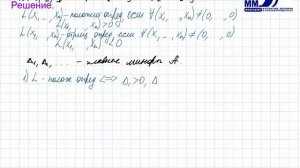 Решение.
MM
L(x₁, , xₙ) - положит опред, если ∀(x₁, , xₙ) ≠ (0, , 0)
L(x₁, , xₙ) > 0
L(x₁, , xₙ) - отриц опред, если ∀(x₁, , xₙ) ≠ (0, , 0)
L(x₁, , xₙ) < 0
Δ₁, Δ₂, . . . - главные миноры A
1) L - полож опред ⟺ Δ₁ > 0, Δ